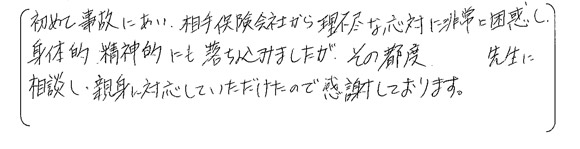 初めて事故にあい、相手保険会社から理不尽な応対に非常に困惑し、
身体的 精神的にも落ち込みましたが、その都度、 先生に
相談し、親身に対応していただけたので感謝しております。